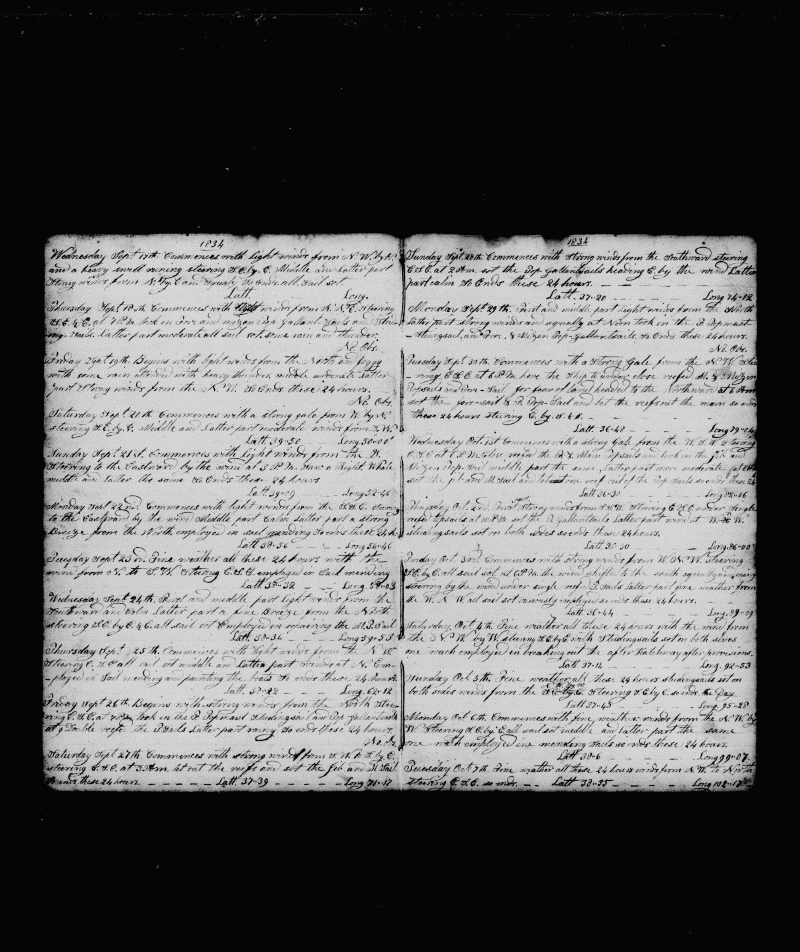 1834
Wednesday Sept 17th Commences with light winds from N.W. by N.
and a heavy swell runing steering S.E. by E. Middle and Latter part
Strong winds from N. by E. and Squaly So Ends all Sail set
Latt. Long.
Thursday Sept 18th Commences with light winds from N.N.E. Steering
at 7 P.M. took in Fore and mizen Top Gallant Sails and
Latter part moderate all sail set some rain and thunder
No Obs.
Friday Sept 19th Begins with light winds from the North and foggy
with some rain attended with heavy thunder middle moderate Latter
part Strong winds from the N.W. So Ends these 24 hours.
No Obs.
Saturday Sept 20th Commences with a strong gale from W. by N.
steering S.E. by E. Middle and Latter part moderate winds from
Latt 39-50 Long 50-00
Sunday Sept 21st. Commences with Light winds from the
Heading to the Eastward by the wind at 5 P.M. Saw a Right Whale
middle and Latter the same So Ends these 24 hours
Latt 39-09 Long 52-46
Monday Sept 22nd. Commences with light winds from the
to the Eastward by the wind Middle part Calm Latter part a strong
Breeze from the North employed in sail mending So ends these
Latt 38-56 Long 56-46
Tuesday Sept 23rd. Fine weather all these 24 hours with the
wind from N. to S.W. Steering E.S.E. employed in Sail mending
Latt 38-32 Long
Wednesday Sept 24th. First and middle part light winds from the
Southward and Calm Latter part a fine Breeze from the North
steering S.E. by E. all sail set Employed in repairing the M.T. Sail
Latt 38-36 Long 59-53
Thursday Sept. 25th. Commences with light winds from the
Steering all sail set middle and Latter part winds at N. Em
-ployed in Sail mending and painting the boats So ends these 24 hours
Long 62-12
Friday Sept 26th Begins with strong winds from the North Stee-
ring took in the Studingsail and Top Gallantsails
at 9 Double reefed the T. Sails Latter part rainy So ends these 24 hours
No Obs
Saturday Sept 27th Commences with strong winds from
steering E.S.E. at 3 A.M. let out the reefs and set the Jib and M Sail
So ends these 24 hours. Latt 37-39 Long 71-17
1834
Sunday Sept 28th Commences with Strong winds from the Southward steering
at 2 A.M. set the Top Gallantsails heading E. by the wind Latter
part calm So Ends these 24 hours.
Latt. 37-20 Long 74-12
Monday Sept 29th. First and middle part light winds from the North
Latter part strong winds and squally at Noon took in the F. Topmast
Studingsail, and Fore & Mizen Top-Gallantsails. So Ends these 24 hours.
No Obs
Tuesday Sept 30th Commences with a strong Gale from the N.W. Stee-
ring E.S.E. at 6 P.M. hove the Ship to under close reefed
Topsails and Fore-Sail for fear of land headed to the Northward at 6 A.M
set the fore-sail & F. Top-Sail and let the reefs out the main so ends
these 24 hours steering E. by S.
Latt 36-42 Long 79-24
Wednesday Oct. 1st Commences with a strong Gale from the W.S.W. Steering
E.S.E. at 6 P.M. close reefed the F. & Main Topsails and took in the jib and
Mizen Top-Sail middle part the same, Latter part more moderate
set the jib and M. Sail and let one reef out of the Top Sails So ends these 24
Latt 36-31 Long 82-26
Thursday Oct. 2nd. First part Strong winds from S.W. Steering E.S.E. under Single
reefed topsails at 10 P.M. set the T. Gallantsails Latter part wind at W.
studingsails set on both sides So ends these 24 hours.
Latt 36-30 Long 86-00
Friday Oct. 3rd Commences with strong winds from W.N.W. Steering
S.E. by E. all sail set at 6 P.M. the wind shifted to the south squally and rainy
steering by the wind under single reefed T. Sails Latter part fine weather from
the W.N.W all sail set variously employed So ends these 24 hours.
Latt 36-44 Long 89-29
Saturday Oct 4th Fine weather all these 24 hours with the wind from
the N.W. by W. Steering S.E. by E. with Studingsails set on both sides
one watch employed in breaking out the after Hatchway after provisions.
Latt 37-14 Long. 92-53
Sunday Oct 5th. Fine weather all these 24 hours studingsails set on
both sides winds from the Steering S.E. by E. so ends the Day
Latt 37-45 Long, 95-28
Monday Oct 6th. Commences with fine weather winds from the N.W. by
W. Steering S.E. by E. all sail set middle and latter part the same
one watch employed in mending sails so ends these 24 hours.
Latt 38-6 Long 99-07
Tuesday Oct 7th Fine weather all these 24 hours winds from N.W. to North
steering E.S.E. so ends. Latt 38-35 Long 102-17